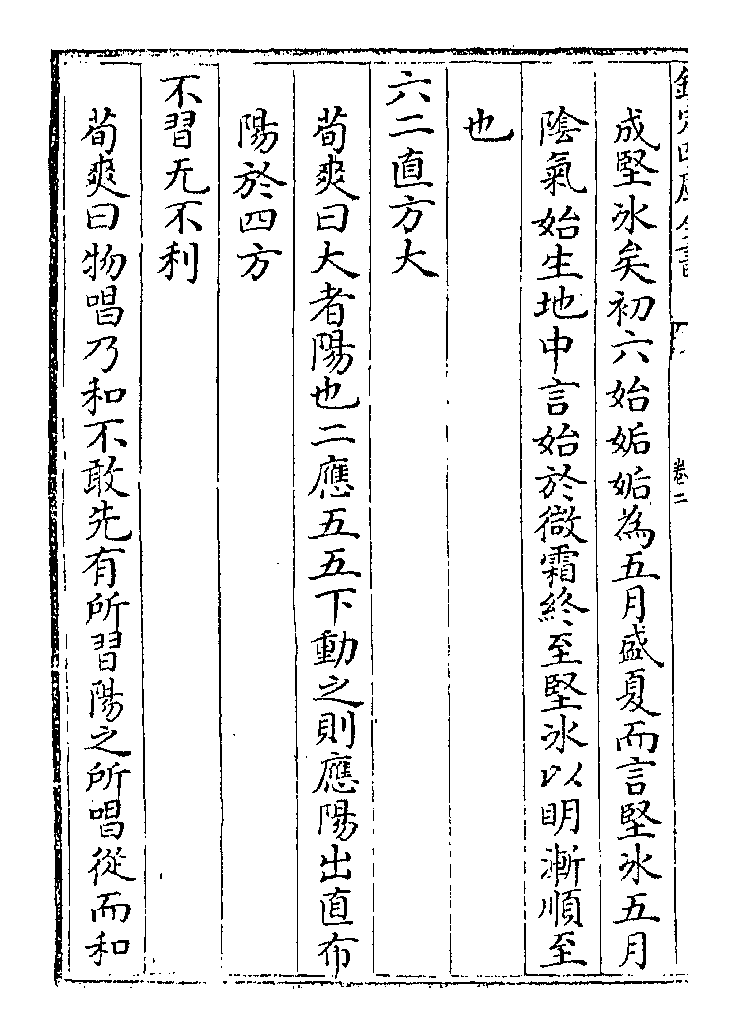 欽定四庫全書
卷二
成堅冰矣初六始姤姤為五月盛夏而言堅冰五月
陰氣始生地中言始於微霜終至堅冰以明漸順至
也
六二直方大
荀爽曰大者陽也二應五五下動之則應陽出直布
陽於四方
不習无不利
荀爽曰物唱乃和不敢先有所習陽之所唱從而和